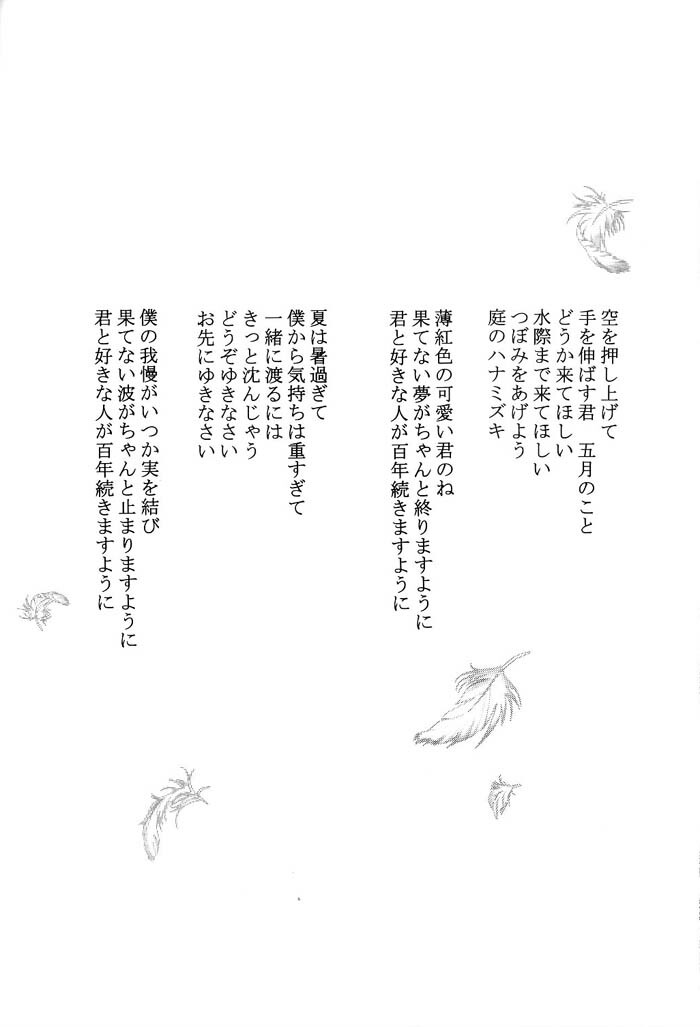 空を押し上げて
手を伸ばす君　五月のこと
どうか来てほしい
水際まで来てほしい
つぼみをあげよう
庭のハナミズキ
薄紅色の可愛い君のね
果てない夢がちゃんと終りますように
君と好きな人が百年続きますように
夏は暑過ぎて
僕から気持ちは重すぎて
一緒に渡るには
きっと沈んじゃう
どうぞゆきなさい
お先にゆきなさい
僕の我慢がいつか実を結び
果てない波がちゃんと止まりますように
君と好きな人が百年続きますように